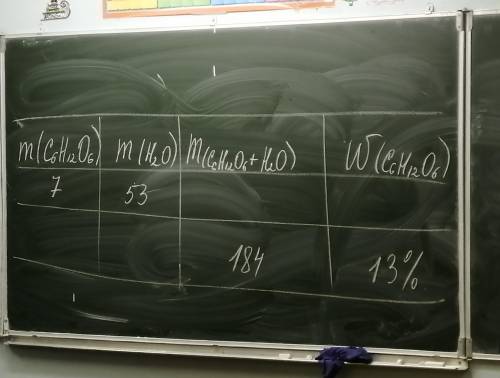 m(C₆H₁₂O₆) m(H₂O) m(C₆H₁₂O₆+H₂O) W(C₆H₁₂O₆)
7 53
184 13%